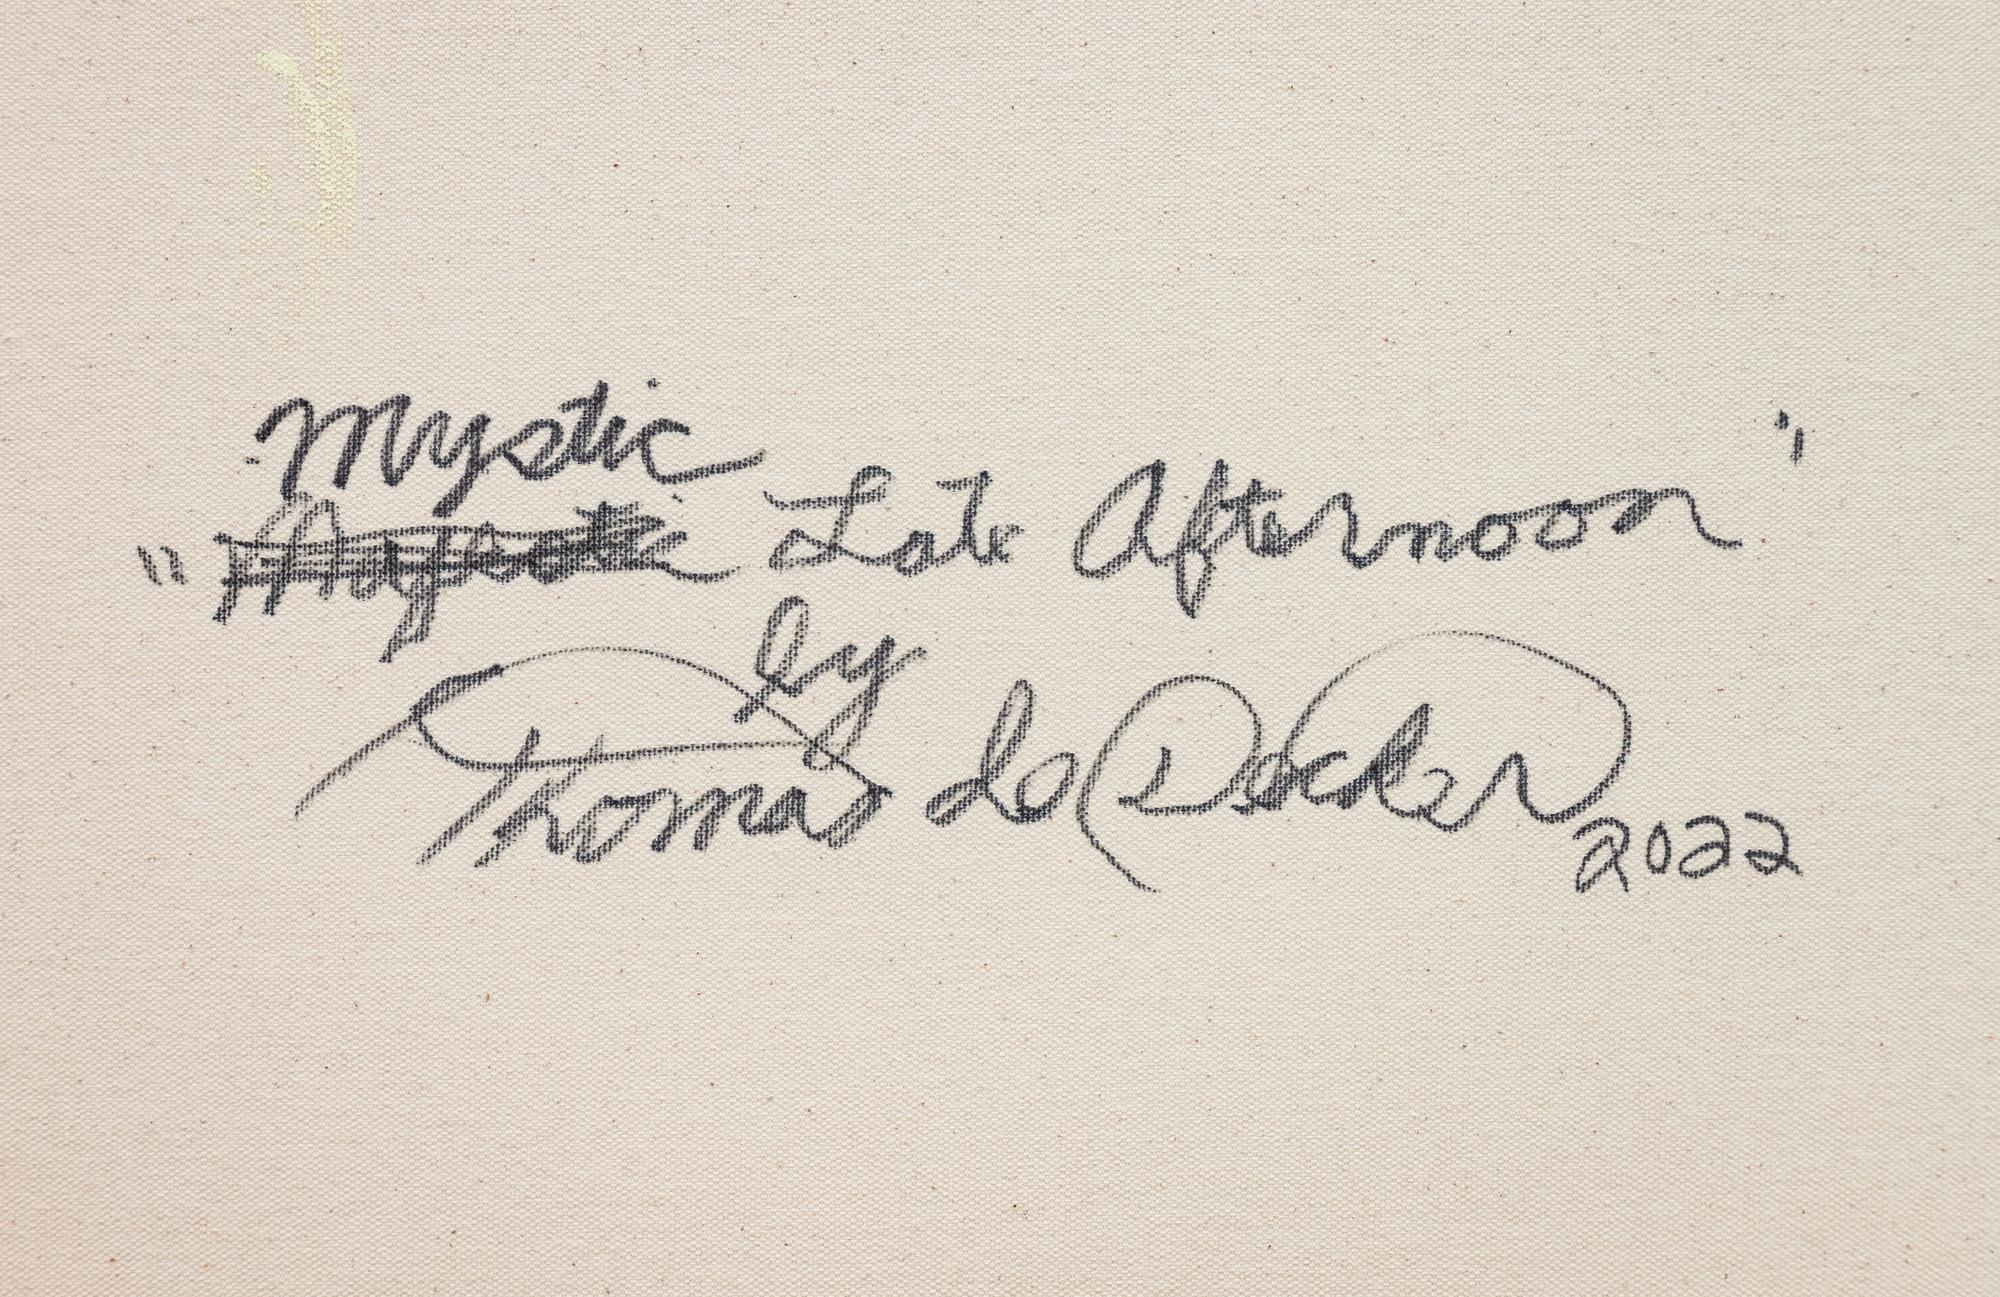 Mystic
" Late Afternoon "
by
Thomas de Decker
2022